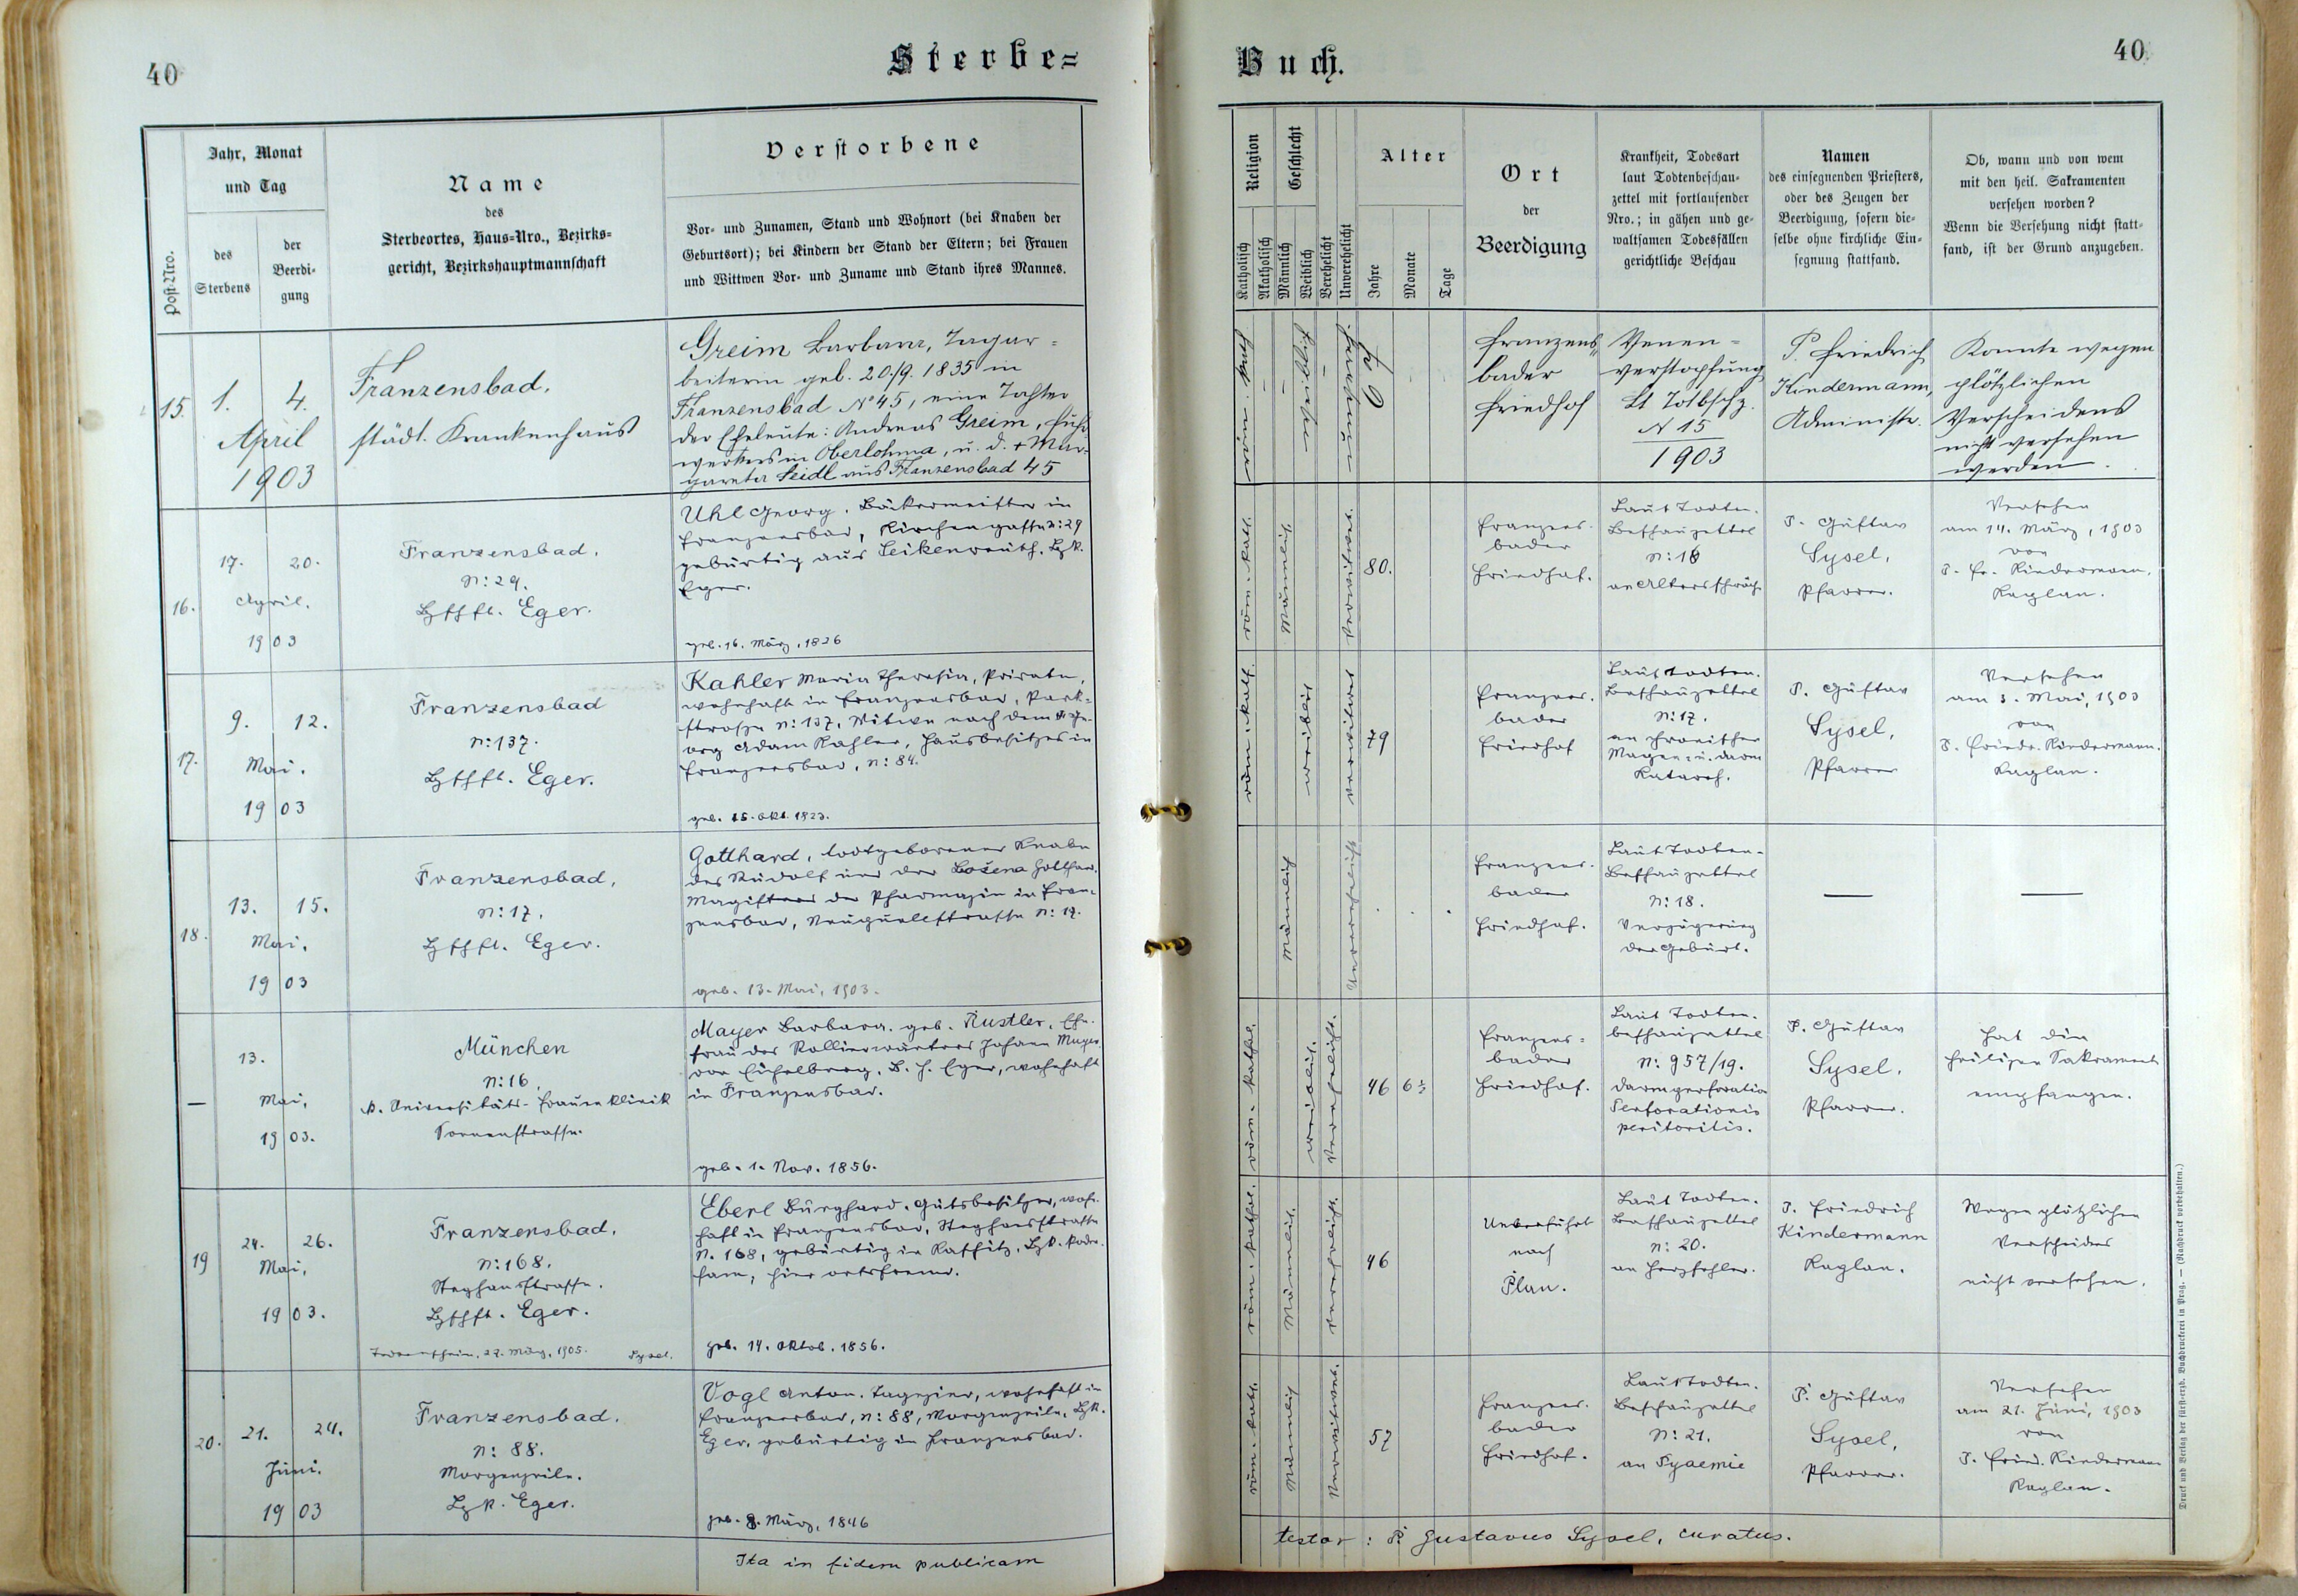 40
Sterbe=
Buch.
40
Post-Nro.
Jahr, Monat
und Tag
des
Sterbens
der
Beerdi-
gung
Name
des
Sterbeortes, Haus-Nro., Bezirks-
gericht, Bezirkshauptmannschaft
Verstorbene
Vor- und Zunamen, Stand und Wohnort (bei Knaben der
Geburtsort); bei Kindern der Stand der Eltern; bei Frauen
und Wittwen Vor- und Zuname und Stand ihres Mannes.
Religion
Katholisch
Akatholisch
Geschlecht
Männlich
Weiblich
Verehelicht
Unverehelicht
Alter
Jahre
Monate
Tage
Ort
der
Beerdigung
Krankheit, Todesart
laut Todtenbeschau-
zettel mit fortlaufender
Nro.; in gähen und ge-
waltsamen Todesfällen
gerichtliche Beschau
Namen
des einsegnenden Priesters,
oder des Zeugen der
Beerdigung, sofern die-
selbe ohne kirchliche Ein-
segnung stattfand.
Ob, wann und von wem
mit den heil. Sakramenten
versehen worden?
Wenn die Versehung nicht statt-
fand, ist der Grund anzugeben.
15.
1. 4.
April
1903
Franzensbad.
städt. Krankenhaus
Greim Barbara, Tagar=
beiterin geb. 20./9. 1835 in
Franzensbad No 45, eine Tochter
der Eheleute: Andreas Greim, Fuhr-
werkers in Oberlohma, u. d. + Mar-
gareta Seidl aus Franzensbad 45
röm. kath
weiblich
67
Franzens=
bader
Friedhof
Venen=
verstopfung
Lt Totbschz.
N 15
1903
P. Friedrich
Kindermann,
Administr.
Konnte wegen
plötzlichen
Verscheidens
nicht versehen
werden.
16.
17. 20.
April.
1903
Franzensbad.
N: 29.
Eger.
Uhl Georg. Bäckermeister in
Franzensbad, Kirchengasse N: 29
gebürtig aus Seikenreuth. Bzk.
Eger.
geb. 16. März, 1826
röm. kath.
Männlich
verwitwet.
80.
Franzens-
bader
Friedhof.
Laut Todten-
Beschauzettel
N: 16
an Altersschwäche
P. Gustav
Sysel,
Pfarrer.
Versehen
am 14. März, 1903
von
P. Fr. Kindermann,
Kaplan.
17.
9. 12.
Mai.
1903
Franzensbad
N: 137.
Eger.
Kahler Maria Theresia, Private,
wohnhaft in Franzensbad, Park-
strasse N: 137, Witwe nach dem + Ge-
org Adam Kahler, Hausbesitzer in
Franzensbad, N: 84.
geb. 15. Okt. 1823.
röm. kath.
weiblich
verwitwet
79
Franzens-
bader
Friedhof
Laut Todten-
Beschauzettel
N: 17.
an chronischer
Magen- u. Darm
Katarrh.
P. Gustav
Sysel,
Pfarrer
Versehen
am 3. Mai, 1903
von
P. Friedr. Kindermann.
Kaplan.
18.
13. 15.
Mai,
1903
Franzensbad,
N: 17.
Eger.
Gotthard, todtgeborener Knabe
des Rudolf und der Božena Gotthard,
Magisters der Pharmazie in Fran-
zensbad, Neuquellstrasse N: 17.
geb. 13. Mai, 1903.
Männlich
Unverehelicht
Franzens-
bader
Friedhof.
Laut Todten-
Beschauzettel
N: 18.
Verzögerung
der Geburt.
—
—
—
13.
Mai,
1903.
München
N: 16,
k. Universitäts-Frauenklinik
Sonnenstrasse.
Mayer Barbara. geb. Rustler. Ehe-
frau des Johann Mayer
von Eichelberg, B. H. Eger, wohnhaft
in Franzensbad.
geb. 1. Nov. 1856.
röm. kathol.
weiblich.
Verehelicht.
46 6½
Franzens-
bader
Friedhof.
Laut Todten-
beschauzettel
N: 957/19.
Darmperforation
Perforationis
peritoritis.
P. Gustav
Sysel.
Pfarrer.
Hat die
heiligen Sakramente
empfangen.
19
24. 26.
Mai,
1903.
Franzensbad.
N: 168.
Eger.
Todtenschein, 27. März, 1905. Sysel.
Eberl Burghard. Gutsbesitzer, wohn-
haft in Franzensbad,
N. 168, gebürtig in
geb. 14. Oktob. 1856.
röm. kathol.
Männlich.
verehelicht.
46
Ueberführt
nach
Plan.
Laut Todten-
Beschauzettel
N: 20.
an Herzfehler.
P. Friedrich
Kindermann
Kaplan.
Wegen plötzlichen
Verscheidens
nicht versehen.
20.
21. 24.
Juni.
1903
Franzensbad.
N: 88.
Morgenzeile.
Bzk. Eger.
Vogl Anton. Tapezier, wohnhaft in
Franzensbad, N: 88, Morgenzeile, Bzk.
Eger, gebürtig in Franzensbad.
geb. 8. März, 1846
röm. kath.
Männlich
Verwitwet.
57
Franzens-
bader
Friedhof.
Laut Todten-
Beschauzettel
N: 21.
an Pyaemie
P. Gustav
Sysel,
Pfarrer.
Versehen
am 21. Juni, 1903
von
P. Fried. Kindermann
Kaplan.
Ita in fidem publicam
testor: P. Gustavus Sysel, curatus.
Druck und Verlag der fürst-erzb. Buchdruckerei in Prag. — (Nachdruck vorbehalten.)